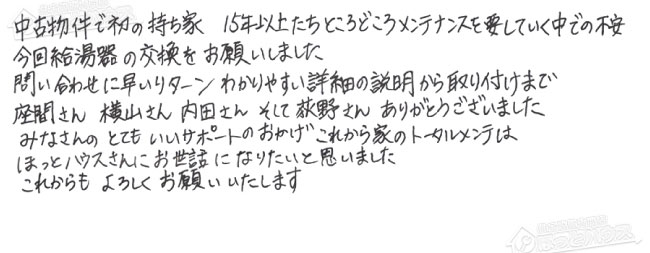 中古物件で初の持ち家　15年以上たちところどころメンテナンスを要していく中での不安
今回給湯器の交換をお願いしました
問い合わせに早いリターン　わかりやすい詳細の説明から取り付けまで
座間さん　横山さん　内田さん　そして荻野さん　ありがとうございました
みなさんのとてもいいサポートのおかげ これから家のトータルメンテは
ほっとハウスさんにお世話になりたいと思いました
これからも よろしく お願いいたします